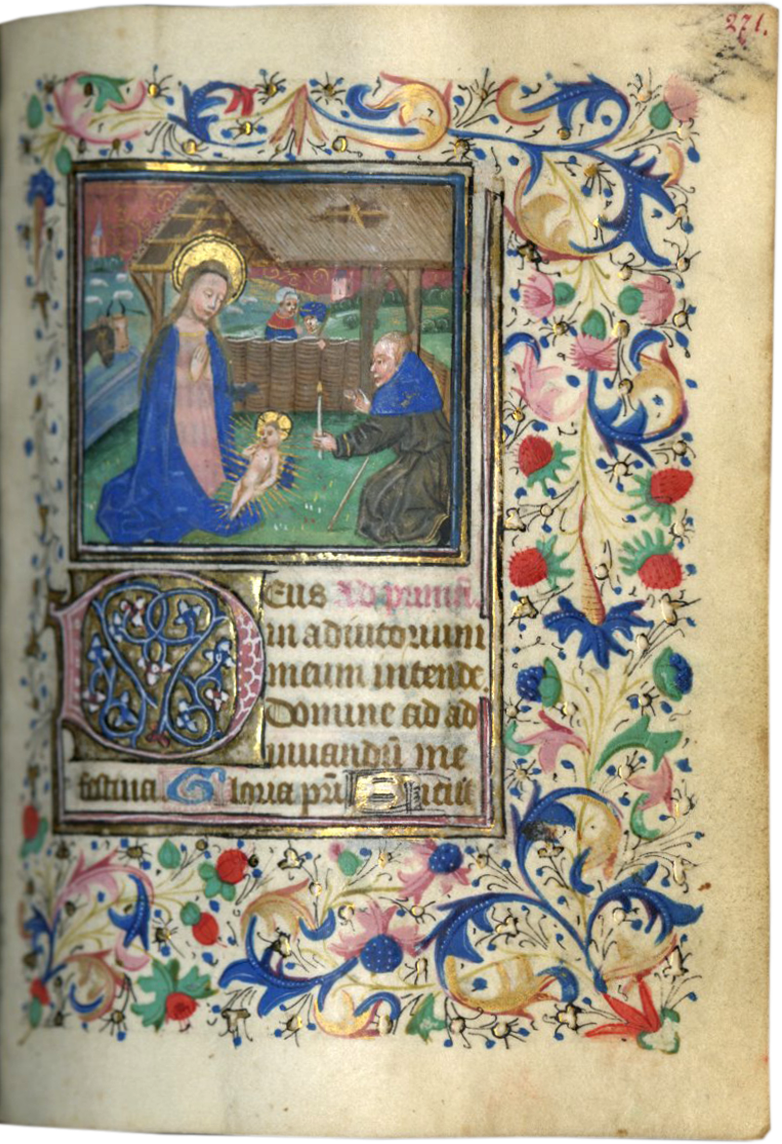 271.
Deus Ad primã.
in adiutorium
meum intende
Domine ad ad
iuuandũ me
festina Gloria pr̃i Sicut